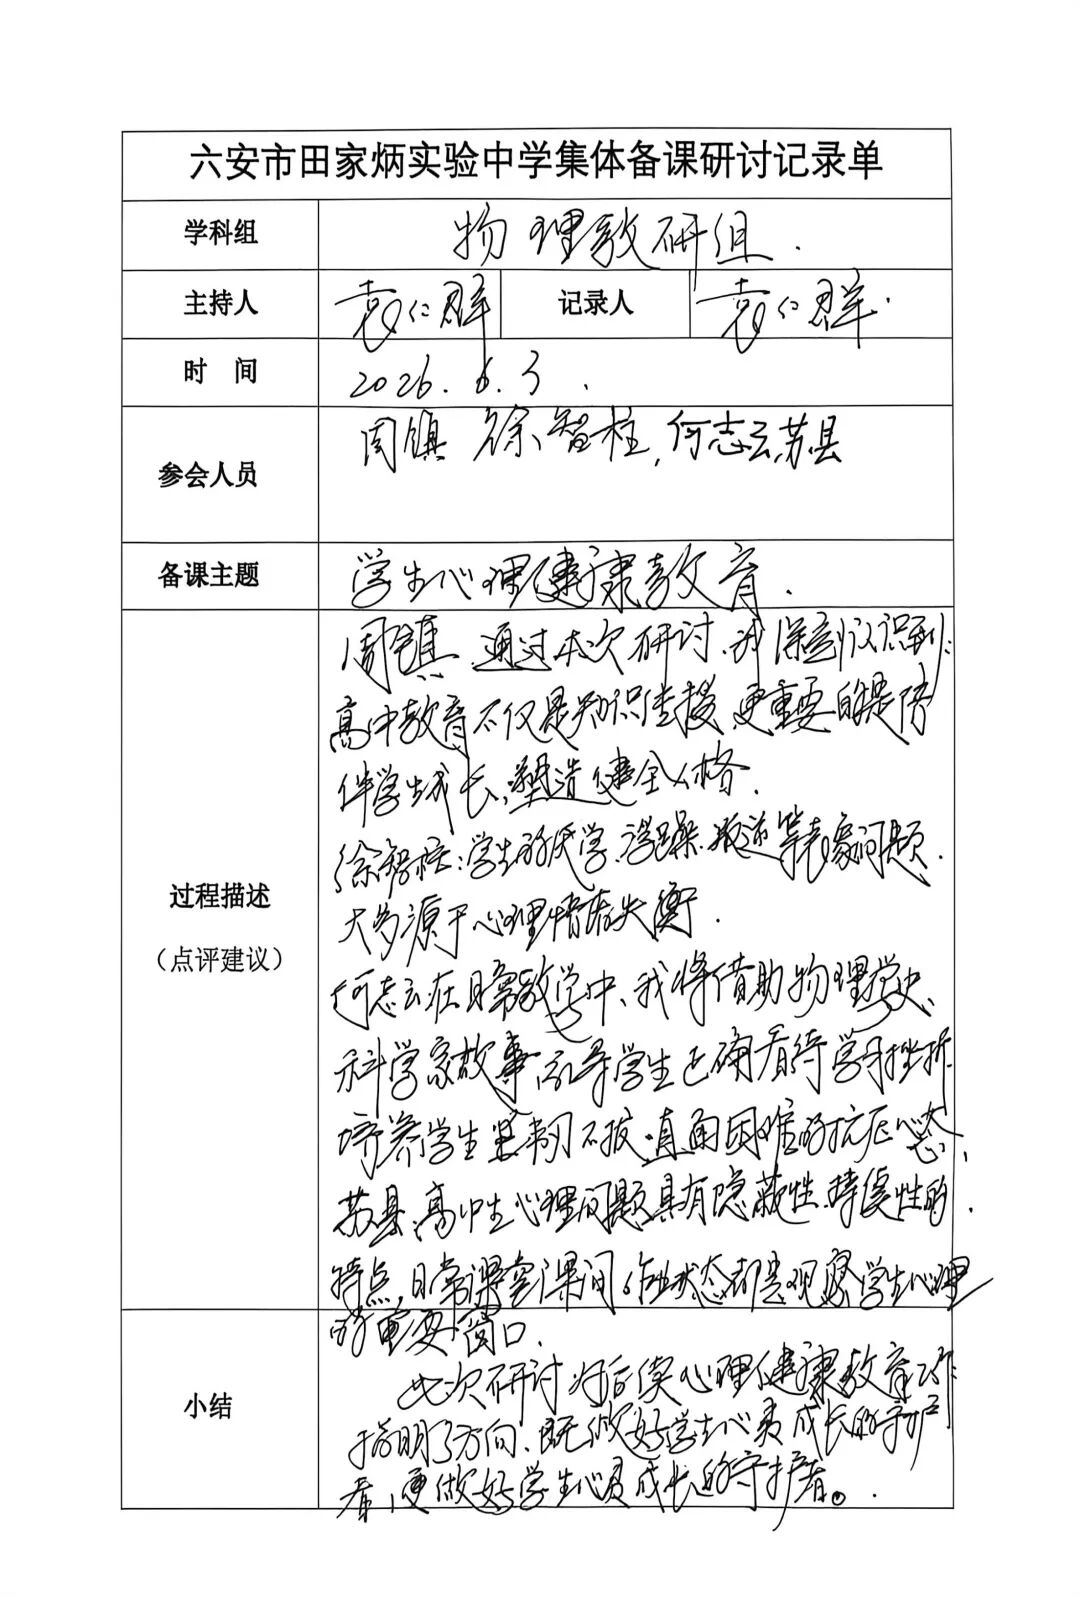 六安市田家炳实验中学集体备课研讨记录单
学科组 物理教研组.
主持人 袁仁群 记录人 袁仁群.
时 间 2026.6.3.
参会人员 周镇 徐智柱,何志云,苏县
备课主题 学生心理健康教育.
过程描述
(点评建议)
周镇:通过本次研讨,我深刻认识到:
高中教育不仅是知识传授,更重要的是陪
伴学生成长,塑造健全人格.
徐智柱:学生的厌学、浮躁、叛逆等表象问题,
大多源于心理情绪失衡.
何志云:在日常教学中、我将借助物理学史、
科学家故事,引导学生正确看待学习挫折,
培养学生坚韧不拔、直面困难的抗压心态、
苏县:高中生心理问题具有隐蔽性、持续性的
特点,日常课堂、课间、作业状态都是观察学生心理
的重要窗口.
小结
此次研讨为后续心理健康教育工作
指明了方向、既做好学生心灵成长的守护
者,更做好学生心灵成长的守护者。.